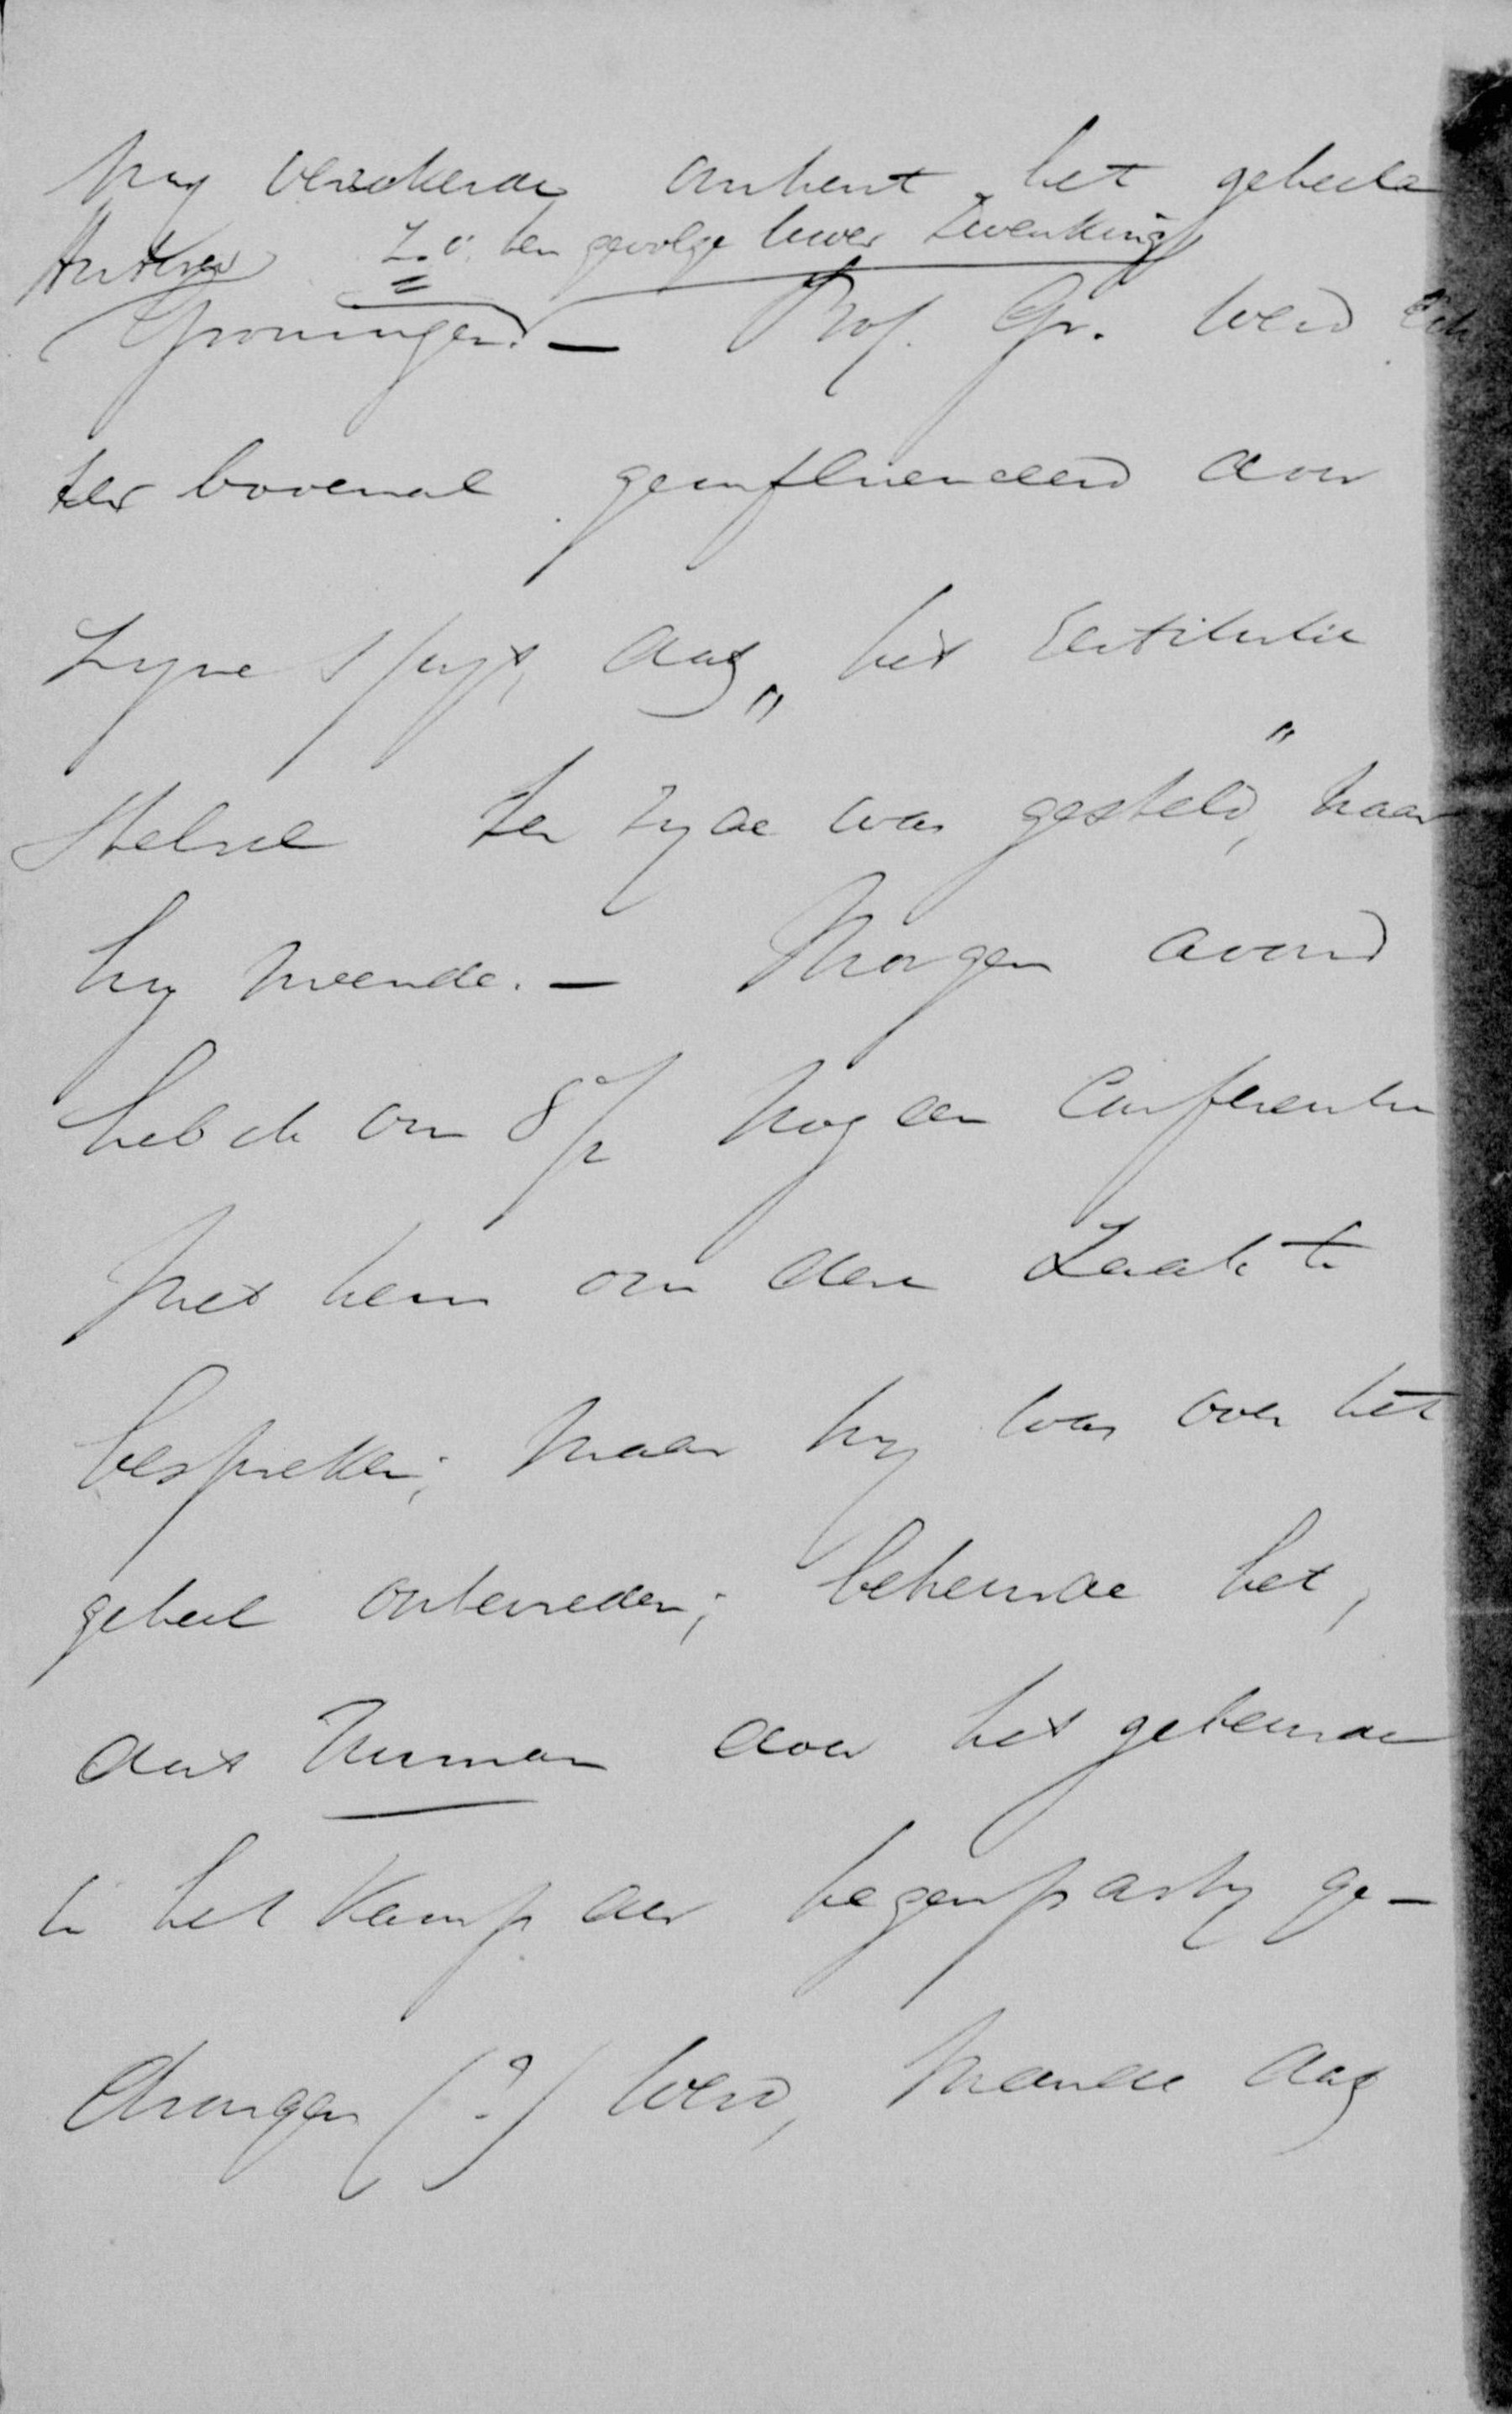 hij verzekerde omtrent het geheele
z.o. ten gevolge uwer zwenking
Groningen. — Prof. Gr. werd ech
ter bovenal geinfluenceerd door
zyne spyt, dat „het Institutie
stelsel ter zyde was gesteld," naar
hy meende. — Morgen avond
heb ik om 8½ nog een conferentie
met hem om deze zaak te
bespreken; maar hy was over het
geheel ontevreden; betreurde het,
dat Numan door het gebeurde
in het kamp der tegenparty ge-
drongen (?) werd, meende dat